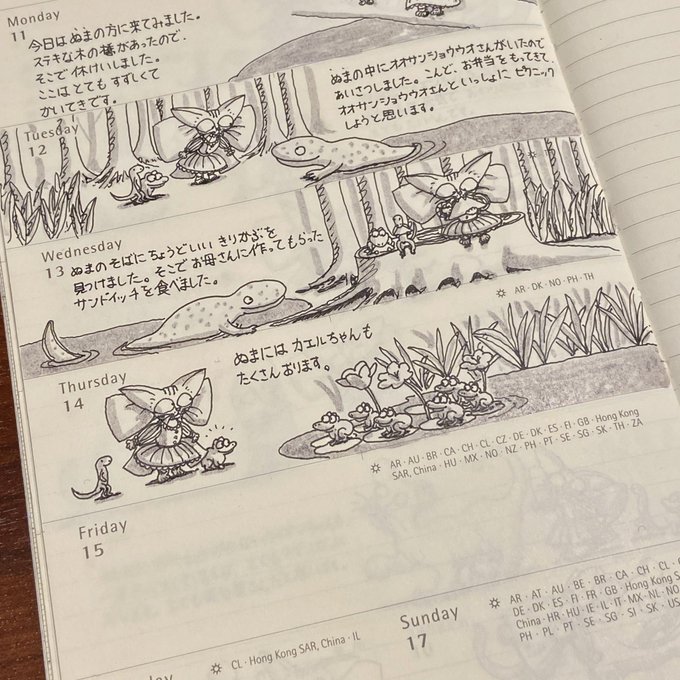 Monday
11
今日はぬまの方に来てみました。
ステキな木の橋があったので、
そこで休けいしました。
ここはとてもすずしくて
かいてきです。
Tuesday
12
ぬまの中にオオサンショウウオさんがいたので
あいさつしました。こんど、お弁当をもってきて、
オオサンショウウオさんといっしょにピクニック
しようと思います。
Wednesday
13
ぬまのそばにちょうどいいきりかぶを
見つけました。そこでお母さんに作ってもらった
サンドイッチを食べました。
AR · DK · NO · PH · TH
Thursday
14
ぬまには カエルちゃんも
たくさんおります。
AR · AU · BR · CA · CH · CL · CZ · DE · DK · ES · FI · GB · Hong Kong
SAR, China · HU · MX · NO · NZ · PH · PT · SE · SG · SK · TH · ZA
Friday
15
CL · Hong Kong SAR, China · IL
Sunday
17
AR · AT · AU · BE · BR · CA · CH · CL ·
DE · DK · ES · FI · FR · GB · Hong Kong
China · HR · HU · IE · IL · IT · MX · NL · NO
PH · PL · PT · SE · SG · SI · SK · US